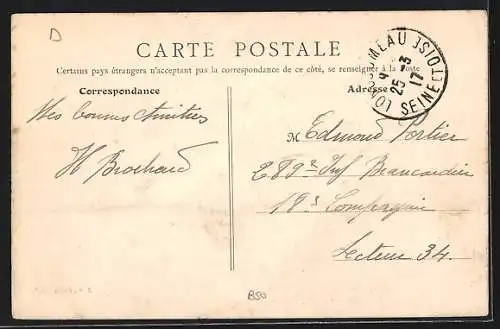 D
CARTE POSTALE
Certains pays étrangers n'acceptant pas la correspondance de ce côté, se renseigner à la Poste
Correspondance
Adresse
LONJUMEAU
9
25-3
17
SEINE ET OISE
Mes bonnes Amitiés
H Brochard
M Edmond Portier
289e Inf Brancardier
18e Compagnie
Secteur 34.
B50